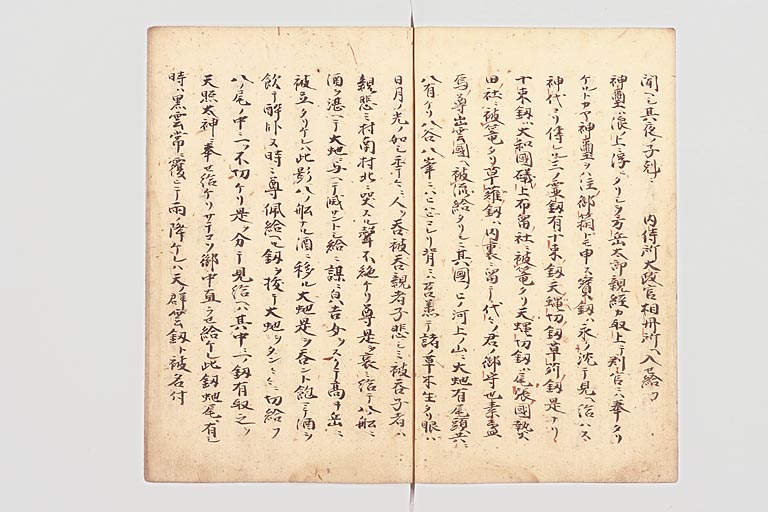 聞ヘシ其夜ノ子剋ニ 内侍所大政官ノ朝所ヘ入セ給フ
神璽ハ浪上ニ浮ヒタリシヲ方岳太郎親経カ取上テ判官ニ奉タリ
ケルトカヤ神璽ヲハ注御筥トモ申ス寳釼ハ永ク沈テ見ヘ給ハス
神代ヨリ傳レル三ノ霊釼有十束釼天蝿切釼草薙釼是ナリ
十束釼ハ大和國礒上布留社ニ被篭タリ天蝿切釼ハ尾張國熱
田社ニ被篭タリ草薙釼ハ内裏ニ留テ代々ノ君ノ御守也素盞
烏尊出雲國ヘ被流給タリシニ其國ヒノ河上ノ山ニ大虵有尾頭共ニ
八有ケリ八谷八峯ニハヒハヒコレリ背ニハ苔薫テ諸ノ草木生タリ眼ハ
日月ノ光ノ如シ年々ニ人ヲ呑被呑親者子悲シミ被呑子者ハ
親悲ミ村南村北ニ哭スル聲不絶ケリ尊是ヲ哀ミ給テ八船ニ
酒ヲ湛ヘテ大虵ニ与ヘテ威サントシ給ニ謀ニ白ハ吉女ヲスヘテ高キ岳ニ
被立タリケレハ此影八ノ船ナル酒ニ移ル大虵是ヲ呑ント飽ニテ酒ヲ
飲テ醉臥ス時ニ尊佩給ヘル釼ヲ抜テ大虵ヲタンタンニ切給フ
八ノ尾ノ中ニ一ツ不切ケリ是ヲ分テ見給ヘハ其中ニ一ノ釼有取之ヲ
天照太神ニ奉セ給ケリサテコソ御中直ラセ給ケレ此釼虵尾ニ有シ
時ハ黒雲常ニ覆ヒテ雨ノ降ケレハ天群雲釼ト被名付